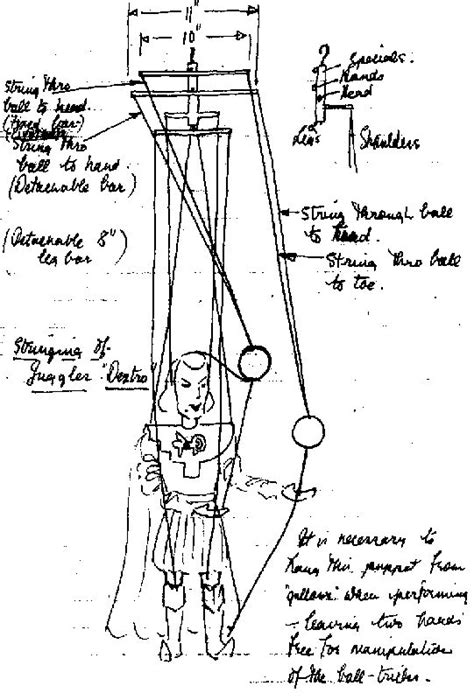 11"
10"
String thro
ball to head.
(Fixed bar)
String thro
ball to hand.
(Detachable bar)
(Detachable 8"
leg bar)
Stringing of
Juggler "Dextro"
Specials.
Hands
Head
Legs
Shoulders
String through ball
to hand.
String thro ball
to toe.
It is necessary to
hang this puppet from
'gallows' when performing
– leaving two hands
free for manipulation
of the ball-tricks.